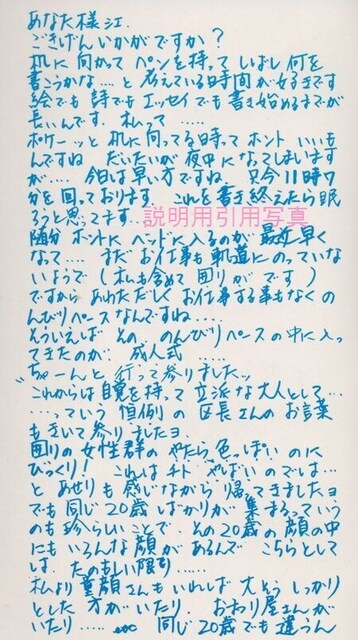 あなた様江.
ごきげんいかがですか?
机に向かってペンを持ってしばし何を
書こうかな……と考えている時間が好きです
絵でも詩でもエッセイでも書き始めるまでが
長いんです. 私って……
ポケーッと机に向ってる時ってホントいいも
んですね だいたいが夜中になってしまいます
が…. 今日は早い方ですね. 只今11時7
分を回っております. これを書き終えたら眠
ろうと思ってます…
説明用引用写真
随分ホントにベッドに入るのが最近早く
なって…. まだお仕事も軌道にのっていな
いようで(私も含めて囲りがです)
ですからあわただしくお仕事する事もなくの
んびりペースなんですね….
そういえばその、のんびりペースの中に入っ
てきたのが 成人式…….
"ちゃーんと行って参りましたッ
これからは自覚を持って立派な大人として…
……っていう恒例の区長さんのお言葉
もきいて参りましたヨ
囲りの女性群のやたら色っぽいのに
びっくり! これはチト やばいのでは…
とあせりも感じながら帰ってきましたヨ
でも同じ20歳ばかりが集まるっていう
のも珍らしいことで. その20歳の顔の中
にもいろんな顔があるんで こちらとして
は. たのもしい限り…….
私より童顔さんもいれば大そうしっかり
とした方がいたり. おわり屋さんが
いたり…… 同じ20歳でも違うん